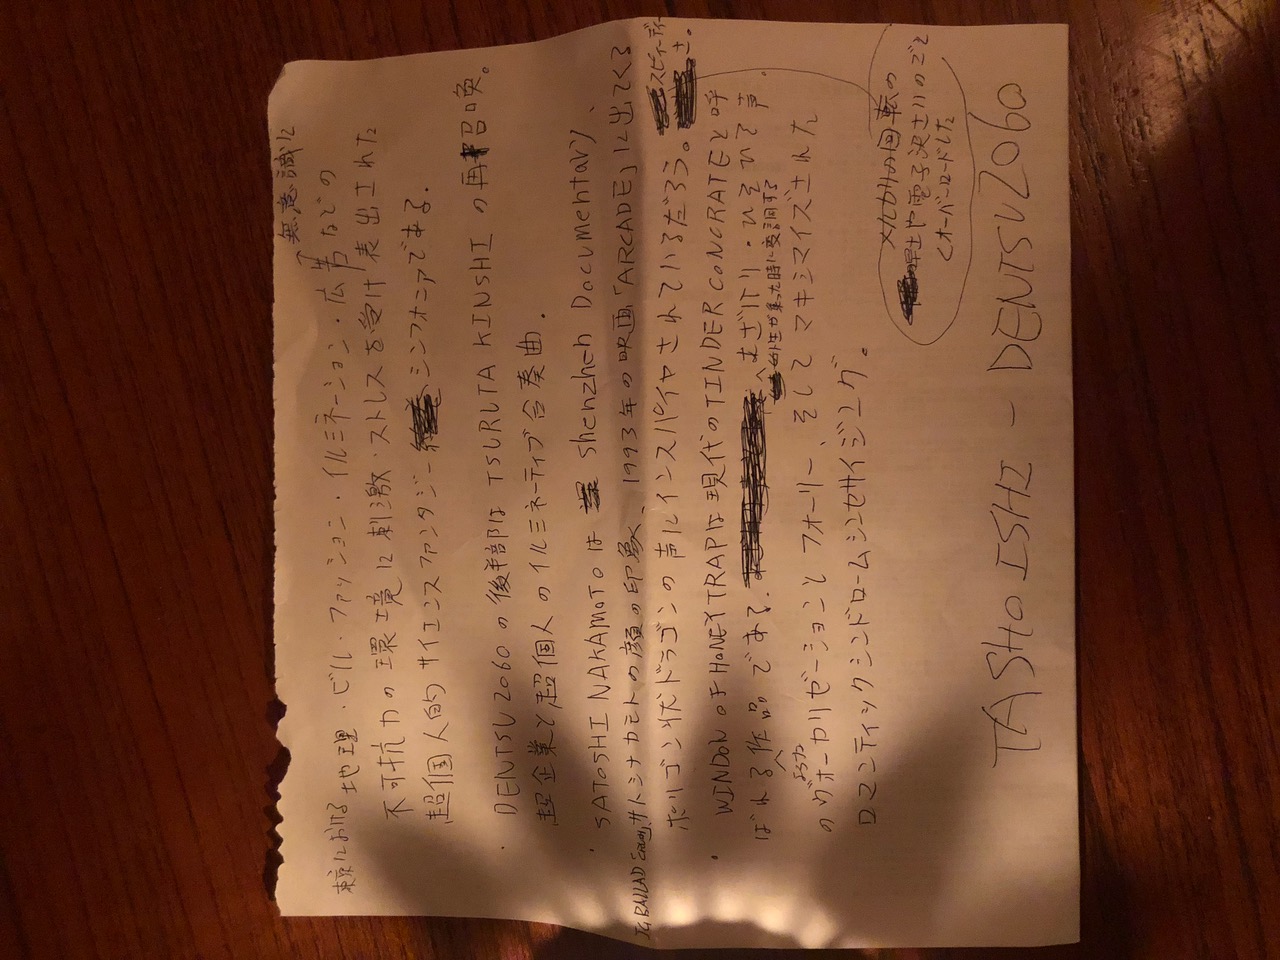 東京における地理・ビル・ファッション・イルミネーション・広告などの
無意識に
不可抗力の環境に刺激・ストレスを受け表出された
超個人的サイエンスファンタジーシンフォニアである.
・DENTSU2060の後半部は TSURUTA KINSHI の再召喚。
超企業と超個人のイルミネーティブ合奏曲.
・SATOSHI NAKAMOTO は Shenzhen Documentary
サトシナカモトの顔の印象、1993年の映画「ARCADE」に出てくる
ポリゴン状ドラゴンの声にインスパイヤされているだろう。
・WINDOW OF HONEYTRAPは現代のTINDER CONCRATEと呼
ばれる作品である. むざけり・ひそひそ声.
のヴォーカリゼーションとフォーリー、そしてマキシマイズされた
ロマンティックシンドロームシンセサイジング。
メルカリの回転の
早さや電子決さいのごと
くオーバーロードした
スピーディさ。
TASHO ISHI - DENTSU2060